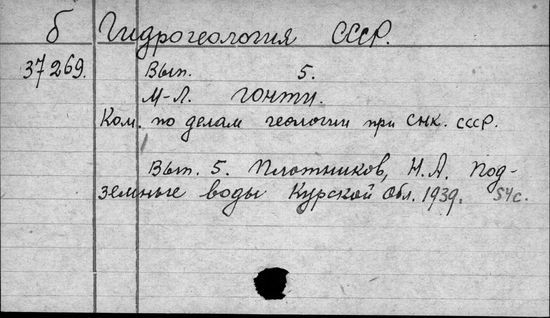 б Гидрогеология СССР.
37269. Вып. 5.
М-Л. ГОНТИ.
Ком. по делам геологии при СНК. СССР.
Вып. 5. Плотников, Н.А. Под-
земные воды Курской Обл. 1939. 54 с.